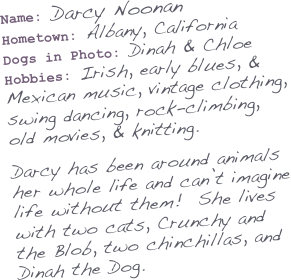 Name: Darcy Noonan
Hometown: Albany, California
Dogs in Photo: Dinah & Chloe
Hobbies: Irish, early blues, &
Mexican music, vintage clothing,
swing dancing, rock-climbing,
old movies, & knitting.
Darcy has been around animals
her whole life and can't imagine
life without them! She lives
with two cats, Crunchy and
the Blob, two chinchillas, and
Dinah the Dog.